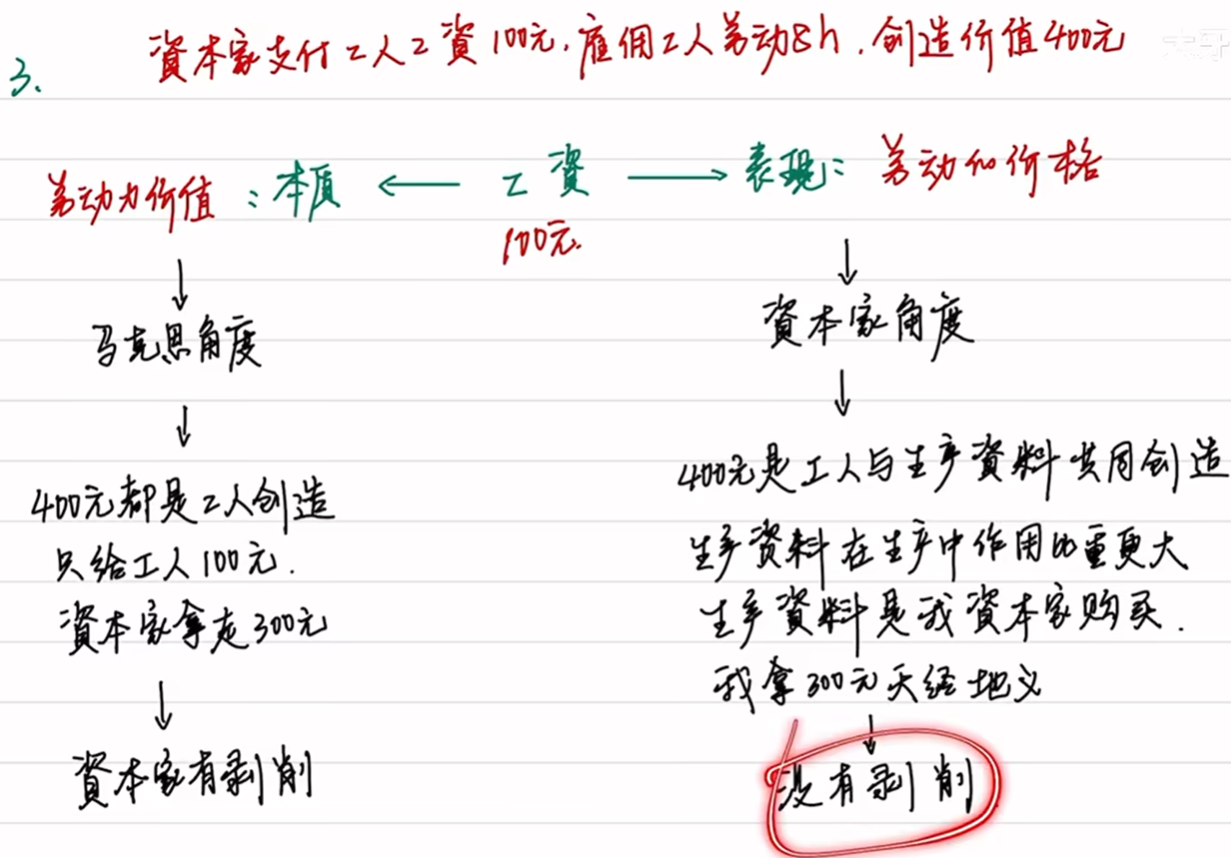 3. 資本家支付工人工資100元,雇佣工人劳动8h.创造价值400元
劳动力价值:本质 ← 工資 → 表现:劳动的价格
100元.
↓
马克思角度
↓
400元都是工人创造
只给工人100元.
資本家拿走300元
↓
資本家有剥削
↓
資本家角度
↓
400元是工人与生产資料共同创造
生产資料在生产中作用比重更大
生产資料是我資本家购买.
我拿300元天经地义
↓
没有剥削